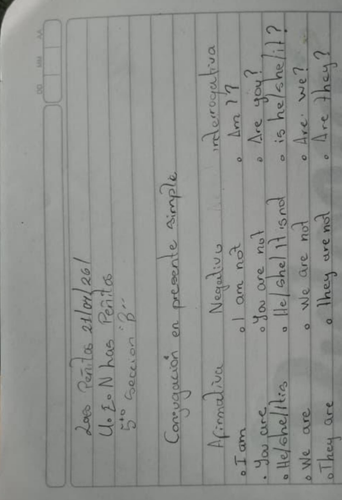 Peñitas 21/04/26/
U.E.N has Peñitas
5to sección "B"
Conjugación en presente simple
Afirmativa Negativa interrogativa
• I am • I am not • Am I?
• You are • You are not • Are you?
• He/she/It is • He/she/It is not • is he/she/it?
• We are • We are not • Are we?
• They are • They are not • Are they?